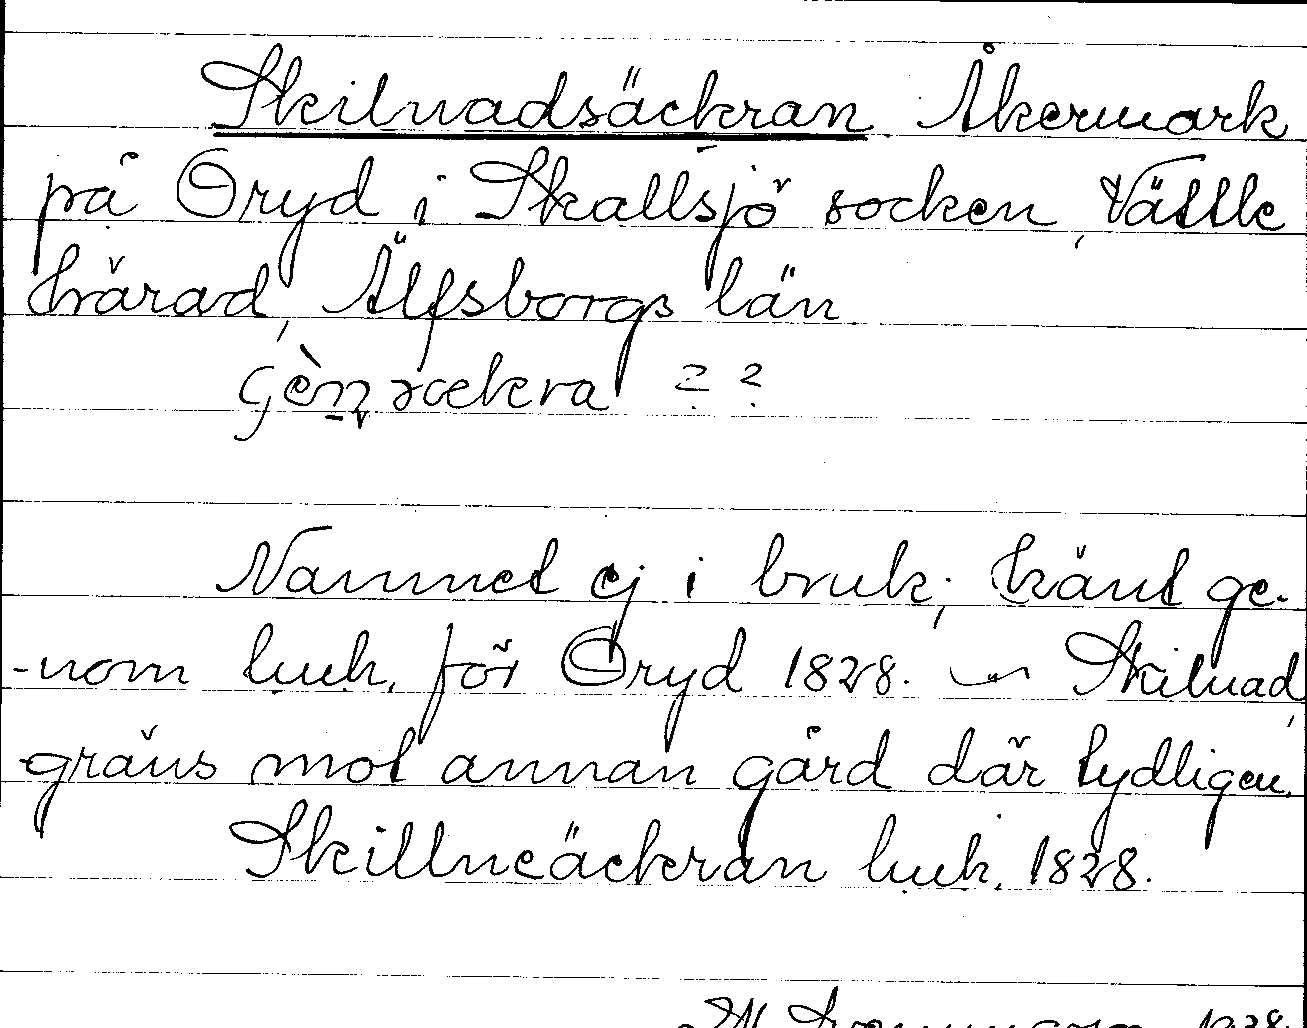 Skilnadsäckran Åkermark
på Öryd i Skallsjö socken, Vättle
härad, Älfsborgs län
? ?
Namnet ej i bruk; känt ge-
-nom luck. för Öryd 1828. — Skilnad,
gräns mot annan gård där tydligen.
Skillneäckran luck. 1828.